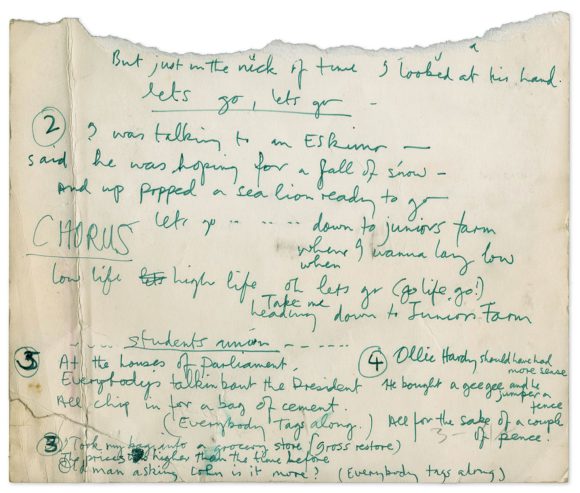 But just in the nick of time I looked at his hand.
lets go, lets go -
2
I was talking to an Eskimo —
said he was hoping for a fall of snow -
And up popped a sea lion ready to go
CHORUS
lets go .. .. .. .. down to juniors farm
where I wanna lay low
when
low life lets high life oh lets go (go life, go!)
Take me
heading down to Juniors Farm
students union
3 At the houses of Parliament,
Everybodys talkin bout the President
All chip in for a bag of cement.
(Everybody Tags along.)
4 Ollie Hardy should have had
more sense
He bought a geegee and he
jumper a
fence
All for the sake of a couple
of pence!
3 Took my bag into a grocery store (Gross restore)
The prices higher than the time before
Old man asking is it more? (Everybody tags along)